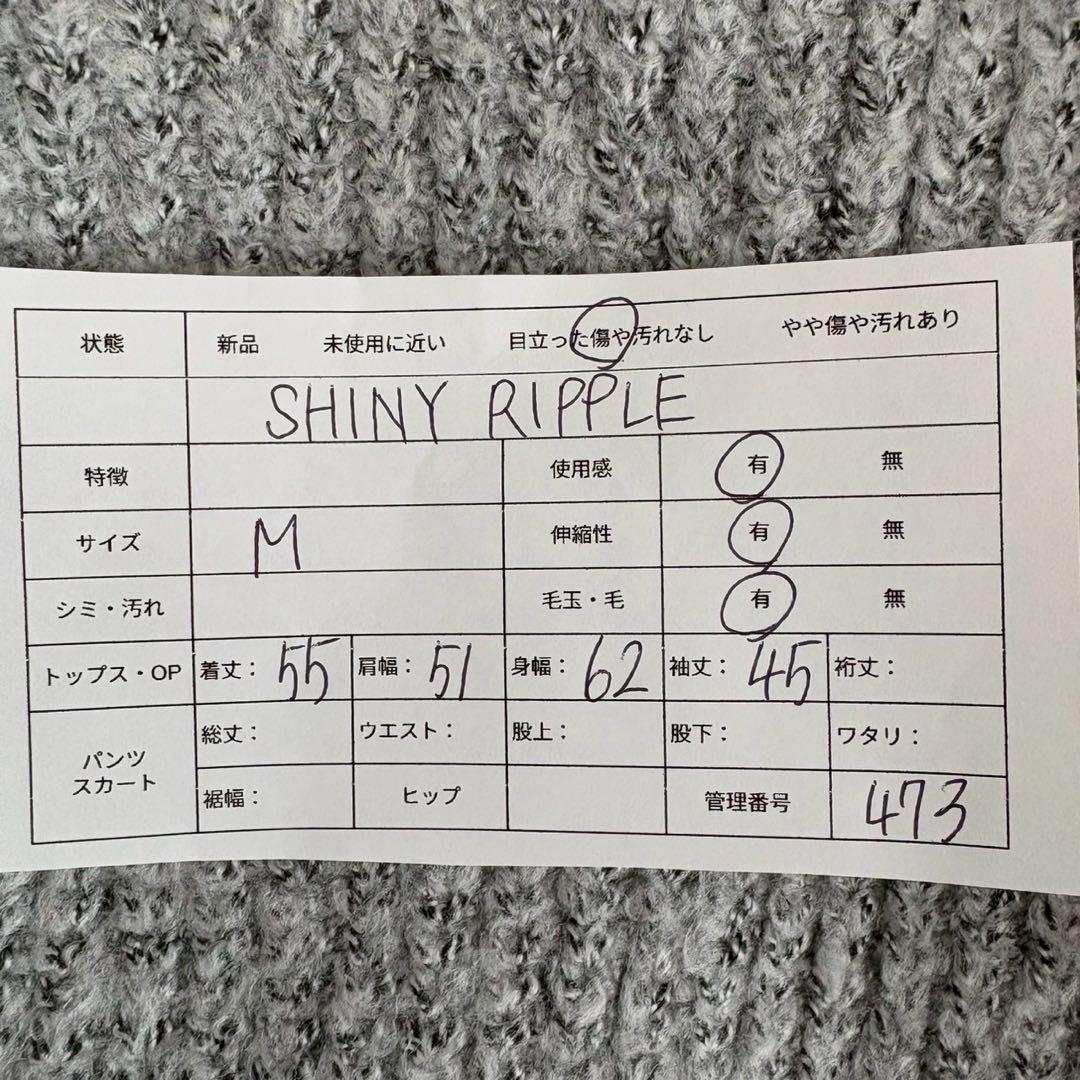 状態 新品 未使用に近い 目立った傷や汚れなし やや傷や汚れあり
SHINY RIPPLE
特徴 使用感 有 無
サイズ M 伸縮性 有 無
シミ・汚れ 毛玉・毛 有 無
トップス・OP 着丈: 55 肩幅: 51 身幅: 62 袖丈: 45 裄丈:
パンツ スカート 総丈: ウエスト: 股上: 股下: ワタリ:
裾幅: ヒップ 管理番号 473